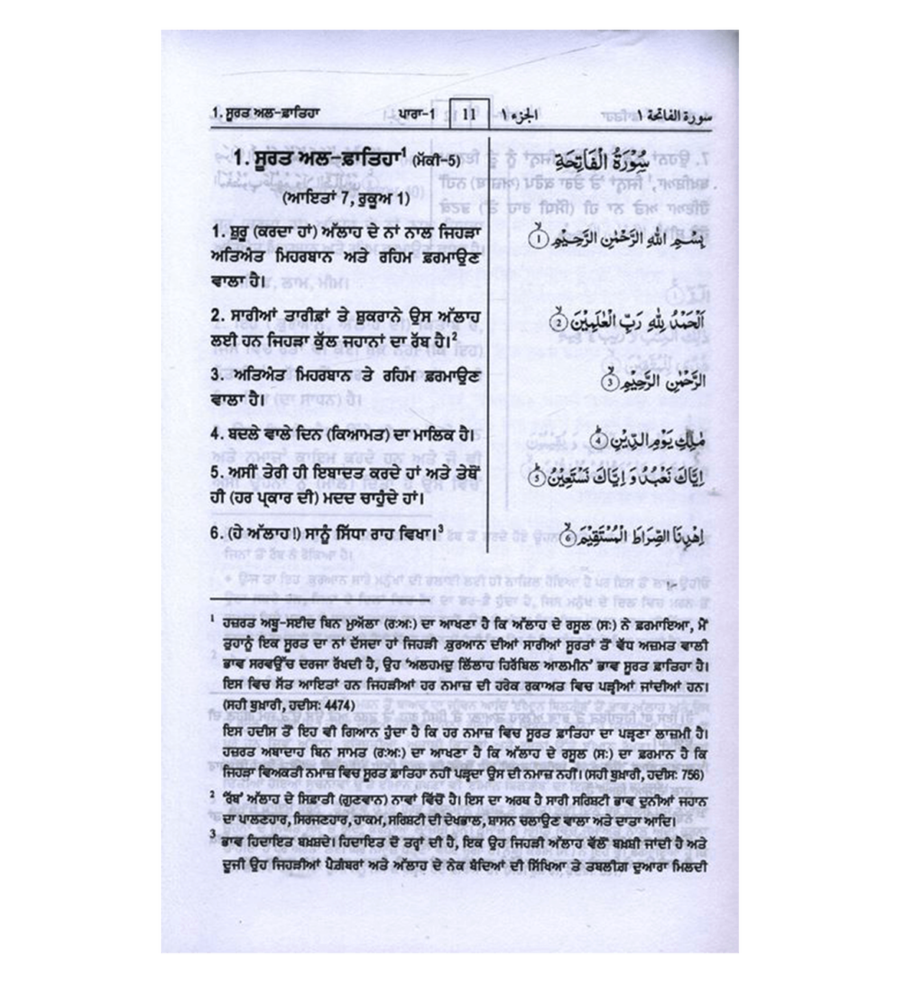 1. ਸੂਰਤ ਅਲ-ਫ਼ਾਤਿਹਾ ਪਾਰਾ-1 11 الجزء ١ سورة الفاتحة ١
1. ਸੂਰਤ ਅਲ-ਫ਼ਾਤਿਹਾ¹ (ਮੱਕੀ-5)
(ਆਇਤਾਂ 7, ਰੁਕੂਅ 1)
1. ਸ਼ੁਰੂ (ਕਰਦਾ ਹਾਂ) ਅੱਲਾਹ ਦੇ ਨਾਂ ਨਾਲ ਜਿਹੜਾ
ਅਤਿਅੰਤ ਮਿਹਰਬਾਨ ਅਤੇ ਰਹਿਮ ਫ਼ਰਮਾਉਣ
ਵਾਲਾ ਹੈ।
2. ਸਾਰੀਆਂ ਤਾਰੀਫ਼ਾਂ ਤੇ ਸ਼ੁਕਰਾਨੇ ਉਸ ਅੱਲਾਹ
ਲਈ ਹਨ ਜਿਹੜਾ ਕੁੱਲ ਜਹਾਨਾਂ ਦਾ ਰੱਬ ਹੈ।²
3. ਅਤਿਅੰਤ ਮਿਹਰਬਾਨ ਤੇ ਰਹਿਮ ਫ਼ਰਮਾਉਣ
ਵਾਲਾ ਹੈ।
4. ਬਦਲੇ ਵਾਲੇ ਦਿਨ (ਕਿਆਮਤ) ਦਾ ਮਾਲਿਕ ਹੈ।
5. ਅਸੀਂ ਤੇਰੀ ਹੀ ਇਬਾਦਤ ਕਰਦੇ ਹਾਂ ਅਤੇ ਤੇਥੋਂ
ਹੀ (ਹਰ ਪ੍ਰਕਾਰ ਦੀ) ਮਦਦ ਚਾਹੁੰਦੇ ਹਾਂ।
6. (ਹੇ ਅੱਲਾਹ!) ਸਾਨੂੰ ਸਿੱਧਾ ਰਾਹ ਵਿਖਾ।³
سُوْرَةُ الْفَاتِحَةِ
بِسْمِ اللّٰهِ الرَّحْمٰنِ الرَّحِيْمِ ۙ ①
اَلْحَمْدُ لِلّٰهِ رَبِّ الْعٰلَمِيْنَ ۙ ②
الرَّحْمٰنِ الرَّحِيْمِ ۙ ③
مٰلِكِ يَوْمِ الدِّيْنِ ④
اِيَّاكَ نَعْبُدُ وَ اِيَّاكَ نَسْتَعِيْنُ ⑤
اِهْدِنَا الصِّرَاطَ الْمُسْتَقِيْمَ ۙ ⑥
¹ ਹਜ਼ਰਤ ਅਬੂ-ਸਈਦ ਬਿਨ ਮੁਅੱਲਾ (ਰ:ਅ:) ਦਾ ਆਖਣਾ ਹੈ ਕਿ ਅੱਲਾਹ ਦੇ ਰਸੂਲ (ਸ:) ਨੇ ਫ਼ਰਮਾਇਆ, ਮੈਂ
ਤੁਹਾਨੂੰ ਇਕ ਸੂਰਤ ਦਾ ਨਾਂ ਦੱਸਦਾ ਹਾਂ ਜਿਹੜੀ .ਕੁਰਆਨ ਦੀਆਂ ਸਾਰੀਆਂ ਸੂਰਤਾਂ ਤੋਂ ਵੱਧ ਅਜ਼ਮਤ ਵਾਲੀ
ਭਾਵ ਸਰਵਉੱਚ ਦਰਜਾ ਰੱਖਦੀ ਹੈ, ਉਹ 'ਅਲਹਮਦੁ ਲਿੱਲਾਹ ਹਿਰੱਬਿਲ ਆਲਮੀਨ' ਭਾਵ ਸੂਰਤ ਫ਼ਾਤਿਹਾ ਹੈ।
ਇਸ ਵਿਚ ਸੱਤ ਆਇਤਾਂ ਹਨ ਜਿਹੜੀਆਂ ਹਰ ਨਮਾਜ਼ ਦੀ ਹਰੇਕ ਰਕਾਅਤ ਵਿਚ ਪੜ੍ਹੀਆਂ ਜਾਂਦੀਆਂ ਹਨ।
(ਸਹੀ ਬੁਖ਼ਾਰੀ, ਹਦੀਸ: 4474)
ਇਸ ਹਦੀਸ ਤੋਂ ਇਹ ਵੀ ਗਿਆਨ ਹੁੰਦਾ ਹੈ ਕਿ ਹਰ ਨਮਾਜ਼ ਵਿਚ ਸੂਰਤ ਫ਼ਾਤਿਹਾ ਦਾ ਪੜ੍ਹਣਾ ਲਾਜ਼ਮੀ ਹੈ।
ਹਜ਼ਰਤ ਅਬਾਦਾਹ ਬਿਨ ਸਾਮਤ (ਰ:ਅ:) ਦਾ ਆਖਣਾ ਹੈ ਕਿ ਅੱਲਾਹ ਦੇ ਰਸੂਲ (ਸ:) ਦਾ ਫ਼ਰਮਾਨ ਹੈ ਕਿ
ਜਿਹੜਾ ਵਿਅਕਤੀ ਨਮਾਜ਼ ਵਿਚ ਸੂਰਤ ਫ਼ਾਤਿਹਾ ਨਹੀਂ ਪੜ੍ਹਦਾ ਉਸ ਦੀ ਨਮਾਜ਼ ਨਹੀਂ। (ਸਹੀ ਬੁਖ਼ਾਰੀ, ਹਦੀਸ: 756)
² 'ਰੱਬ' ਅੱਲਾਹ ਦੇ ਸਿਫ਼ਾਤੀ (ਗੁਣਵਾਨ) ਨਾਵਾਂ ਵਿੱਚੋਂ ਹੈ। ਇਸ ਦਾ ਅਰਥ ਹੈ ਸਾਰੀ ਸਰਿਸ਼ਟੀ ਭਾਵ ਦੁਨੀਆਂ ਜਹਾਨ
ਦਾ ਪਾਲਣਹਾਰ, ਸਿਰਜਣਹਾਰ, ਹਾਕਮ, ਸਰਿਸ਼ਟੀ ਦੀ ਦੇਖਭਾਲ, ਸ਼ਾਸਨ ਚਲਾਉਣ ਵਾਲਾ ਅਤੇ ਦਾਤਾ ਆਦਿ।
³ ਭਾਵ ਹਿਦਾਇਤ ਬਖ਼ਸ਼ਦੇ। ਹਿਦਾਇਤ ਦੋ ਤਰ੍ਹਾਂ ਦੀ ਹੈ, ਇਕ ਉਹ ਜਿਹੜੀ ਅੱਲਾਹ ਵੱਲੋਂ ਬਖ਼ਸ਼ੀ ਜਾਂਦੀ ਹੈ ਅਤੇ
ਦੂਜੀ ਉਹ ਜਿਹੜੀਆਂ ਪੈਗ਼ੰਬਰਾਂ ਅਤੇ ਅੱਲਾਹ ਦੇ ਨੇਕ ਬੰਦਿਆਂ ਦੀ ਸਿੱਖਿਆ ਤੇ ਤਬਲੀਗ਼ ਦੁਆਰਾ ਮਿਲਦੀ